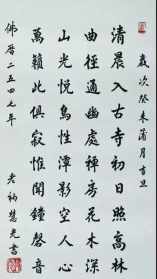 歲次癸未蒲月吉旦
清晨入古寺初日照高林
曲徑通幽處禪房花木深
山光悅鳥性潭影空人心
萬籟此俱寂惟聞鐘磬音
佛曆二五四七年
老衲慧光書